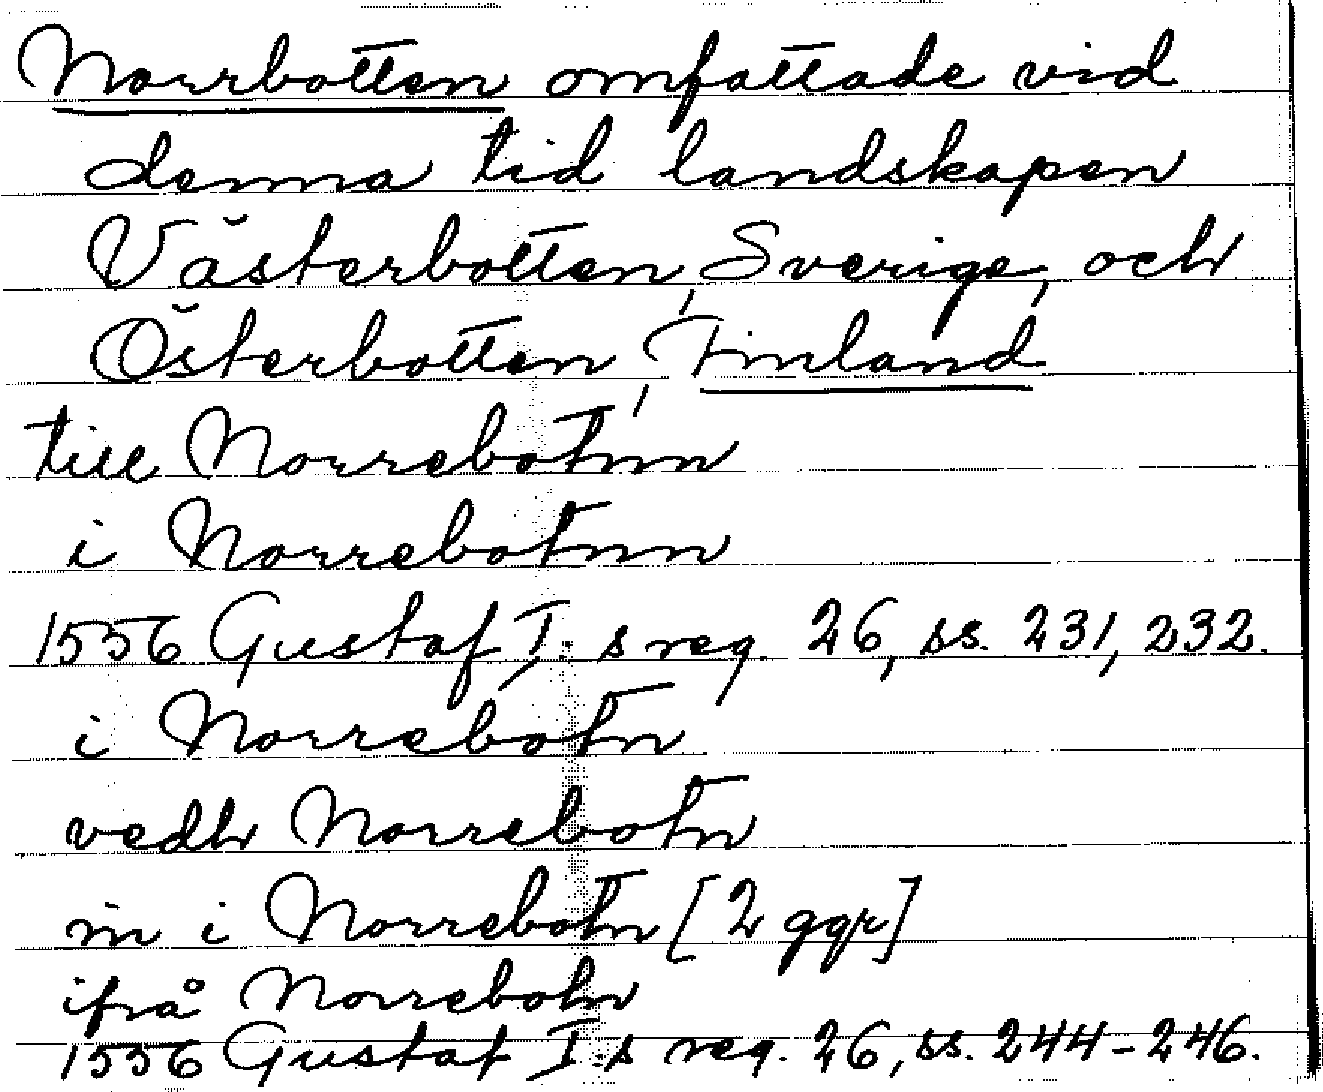 Norrbotten omfattade vid
denna tid landskapen
Västerbotten, Sverige, och
Österbotten, Finland
till Norrebotnn
i Norrebotnn
1556 Gustaf I:s reg. 26, ss. 231, 232.
i Norrebotn
vedh Norrebotn
in i Norrebotn [2 ggr]
ifrå Norrebotn
1556 Gustaf I:s reg. 26, ss. 244-246.